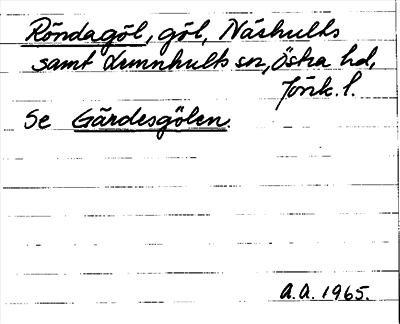 Röndagöl, göl, Näshults
samt Lemnhults snr, Östra hd,
Jönk. l.
Se Gärdesgölen.
A.A. 1965.